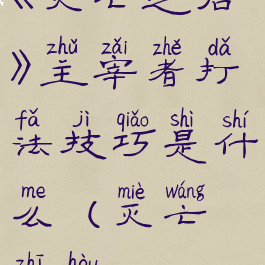 《灭亡之后
zhǔ zǎi zhě dǎ
》主宰者打
fǎ jì qiǎo shì shí
法技巧是什
me miè wáng
么（灭亡
zhī hòu